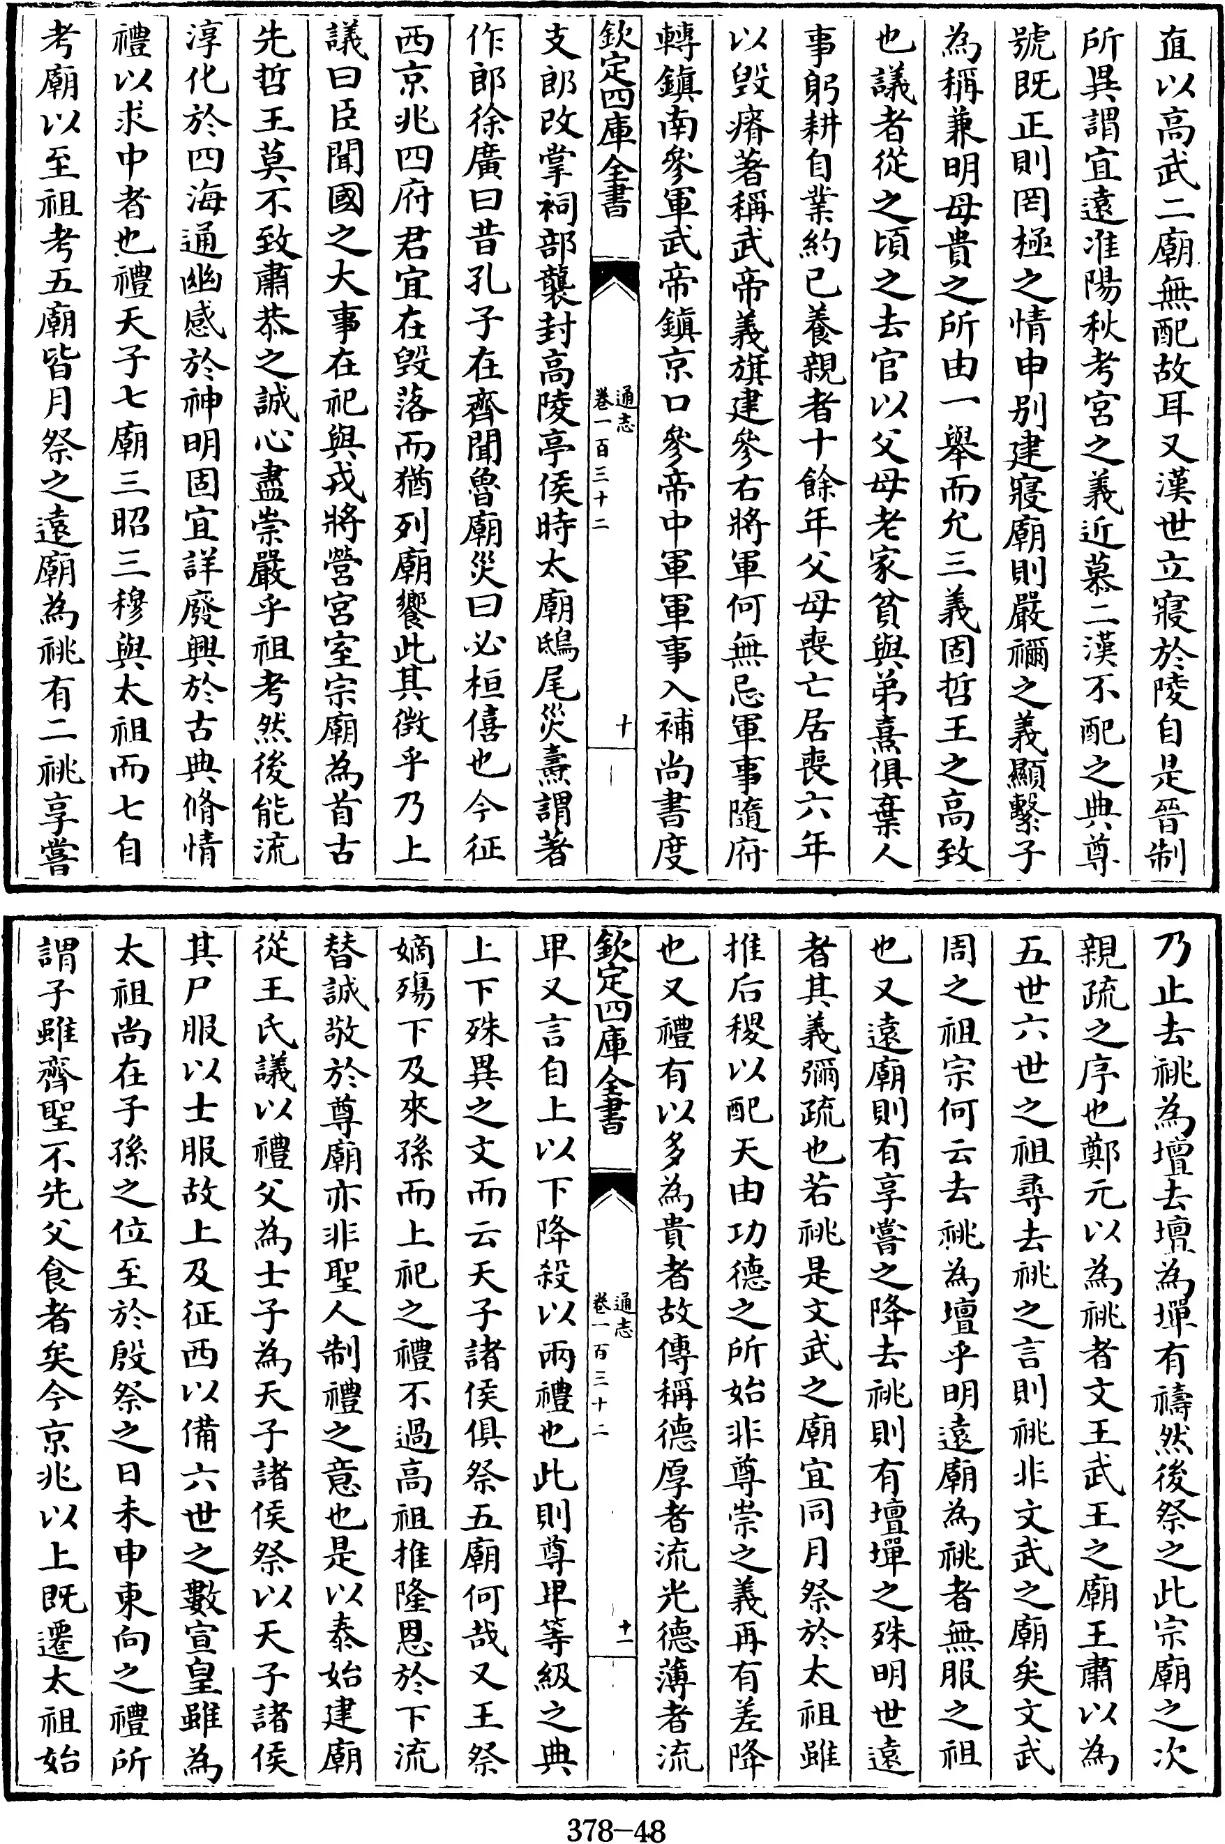 直以高武二廟無配故耳又漢世立寢於陵自是晉制
所異謂宜遠准陽秋考宮之義近慕二漢不配之典尊
號既正則罔極之情申別建寢廟則嚴禰之義顯繫子
為稱兼明母貴之所由一舉而允三義固哲王之高致
也議者從之頃之去官以父母老家貧與弟熹俱棄人
事躬耕自業約己養親者十餘年父母喪亡居喪六年
以毀瘠著稱武帝義旗建參右將軍何無忌軍事隨府
轉鎮南參軍武帝鎮京口參帝中軍軍事入補尚書度
欽定四庫全書
通志
卷一百三十二
十
支郎改掌祠部襲封高陵亭侯時太廟鴟尾災熹謂著
作郎徐廣曰昔孔子在齊聞魯廟災曰必桓僖也今征
西京兆四府君宜在毀落而猶列廟饗此其徵乎乃上
議曰臣聞國之大事在祀與戎將營宮室宗廟為首古
先哲王莫不致肅恭之誠心盡崇嚴乎祖考然後能流
淳化於四海通幽感於神明固宜詳廢興於古典脩情
禮以求中者也禮天子七廟三昭三穆與太祖而七自
考廟以至祖考五廟皆月祭之遠廟為祧有二祧享嘗
乃止去祧為壇去壇為墠有禱然後祭之此宗廟之次
親疏之序也鄭元以為祧者文王武王之廟王肅以為
五世六世之祖尋去祧之言則祧非文武之廟矣文武
周之祖宗何云去祧為壇乎明遠廟為祧者無服之祖
也又遠廟則有享嘗之降去祧則有壇墠之殊明世遠
者其義彌疏也若祧是文武之廟宜同月祭於太祖雖
推后稷以配天由功德之所始非尊崇之義再有差降
也又禮有以多為貴者故傳稱德厚者流光德薄者流
欽定四庫全書
通志
卷一百三十二
十一
卑又言自上以下降殺以兩禮也此則尊卑等級之典
上下殊異之文而云天子諸侯俱祭五廟何哉又王祭
嫡殤下及來孫而上祀之禮不過高祖推隆恩於下流
替誠敬於尊廟亦非聖人制禮之意也是以泰始建廟
從王氏議以禮父為士子為天子諸侯祭以天子諸侯
其尸服以士服故上及征西以備六世之數宣皇雖為
太祖尚在子孫之位至於殷祭之日未申東向之禮所
謂子雖齊聖不先父食者矣今京兆以上既遷太祖始
378-48